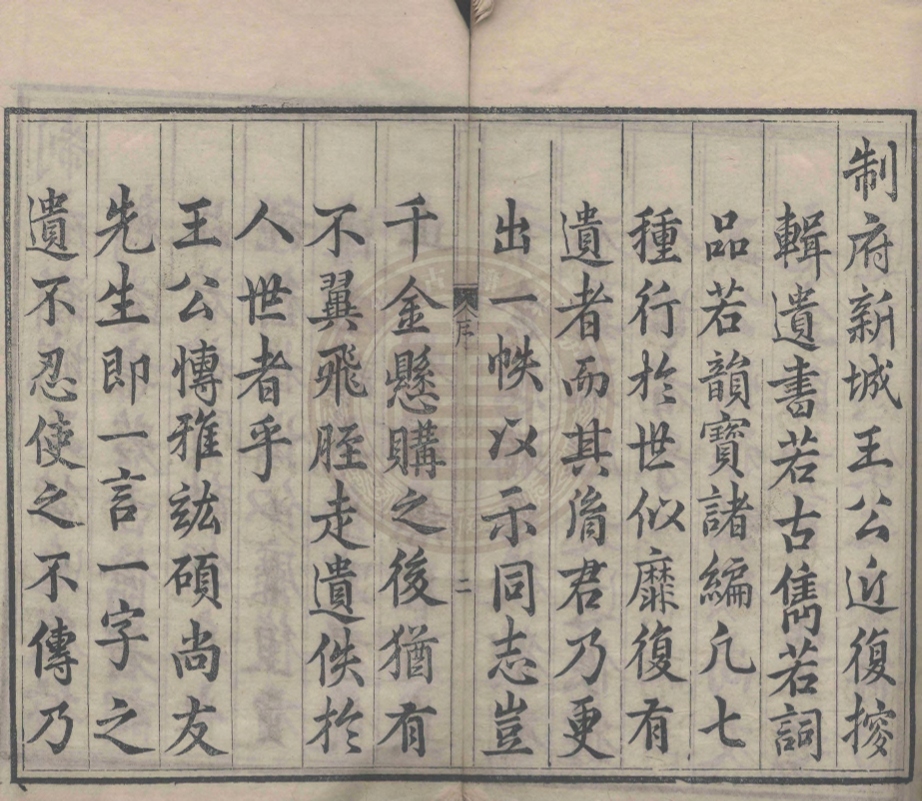 制府新城王公近復搜
輯遺書若古雋若詞
品若韻寶諸編凡七
種行於世似靡復有
遺者而其胤君乃更
出一帙以示同志豈
序
二
千金懸購之後猶有
不翼飛脛走遺佚於
人世者乎
王公博雅竑碩尚友
先生即一言一字之
遺不忍使之不傳乃